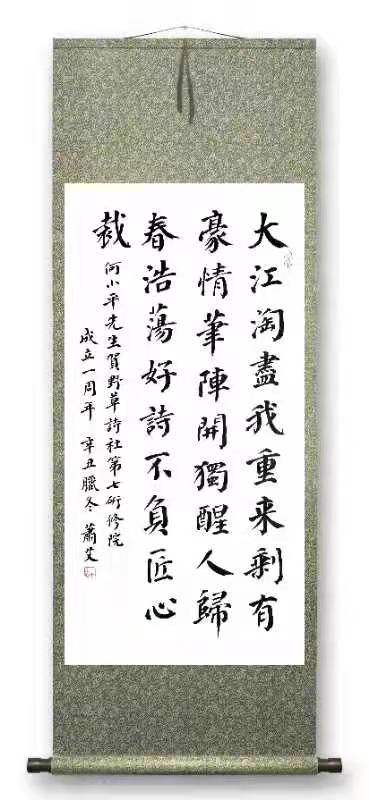 大江淘盡我重来剩有
豪情筆陣開獨醒人歸
春浩蕩好詩不負匠心
裁
何小平先生賀野草詩社第七研修院
成立一周年 辛丑臘冬 蕭艾